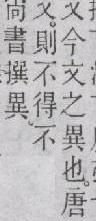 文今文之異也。唐
文。則不得不
尚書撰異